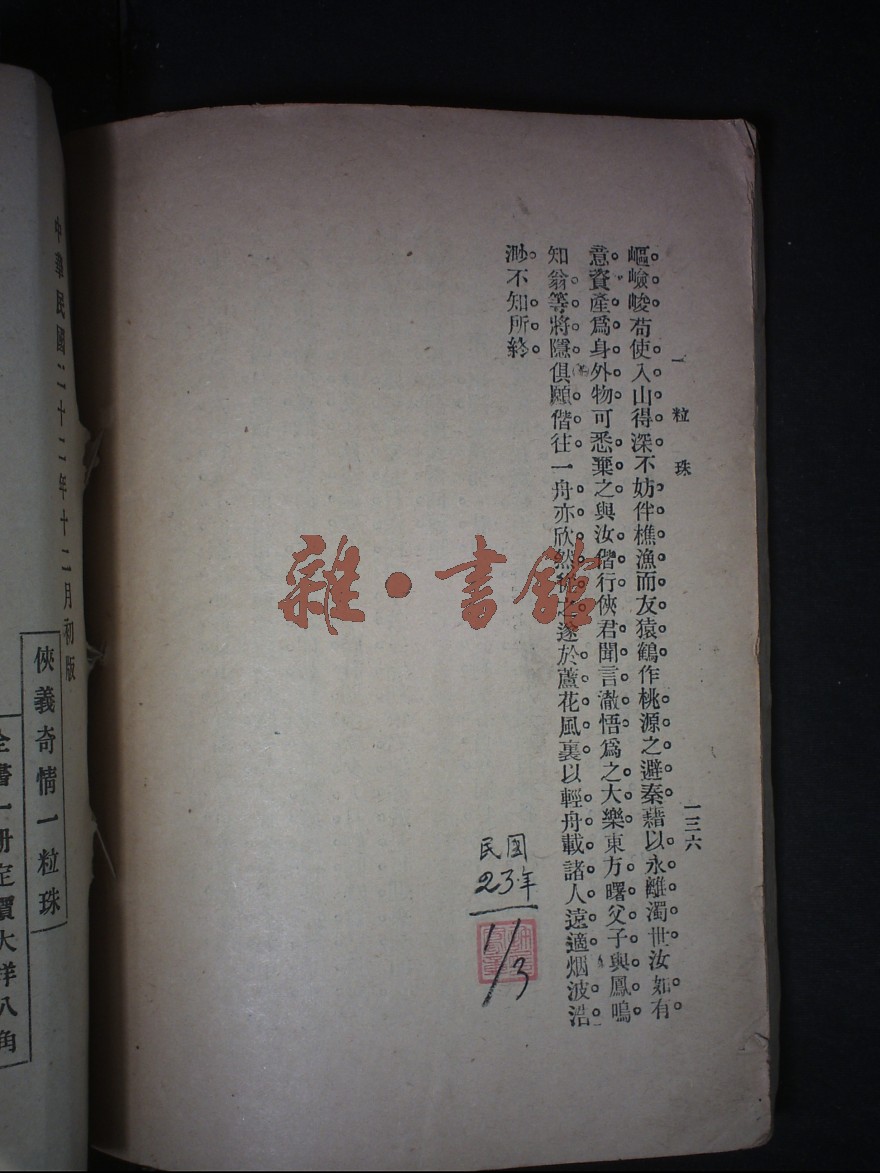 一粒珠
一三六
嶇嶮峻苟使入山得深不妨伴樵漁而友猿鶴作桃源之避秦藉以永離濁世汝如有
意資產爲身外物可悉棄之與汝偕行俠君聞言澈悟爲之大樂東方曙父子與鳳鳴
知翁等將隱俱願偕往一舟亦欣然從之遂於蘆花風裏以輕舟載諸人遠適烟波浩
渺不知所終
民國
23年
1/3
雜·書館
中華民國二十二年十二月初版
俠義奇情一粒珠
全書一册定價大洋八角